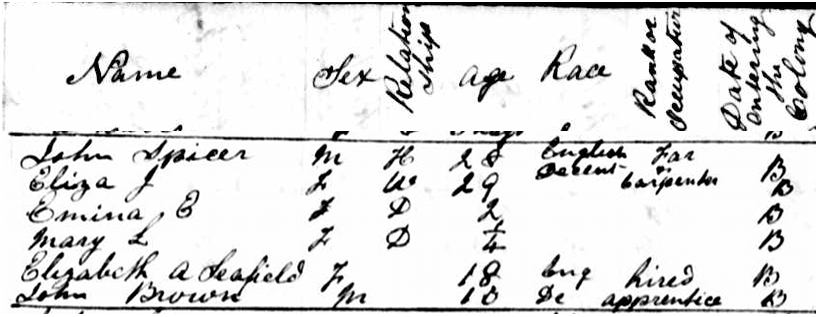 Name Sex Relation ship Age Race Rank or Occupation Date of Entering the Colony
John Spicer M H 28 English Far B
Eliza J F W 29 Decent Carpenter B
Emina E F D 2 B
Mary L F D 1/4 B
Elizabeth A Seafield F 18 Eng hired B
John Brown M 18 De apprentice B